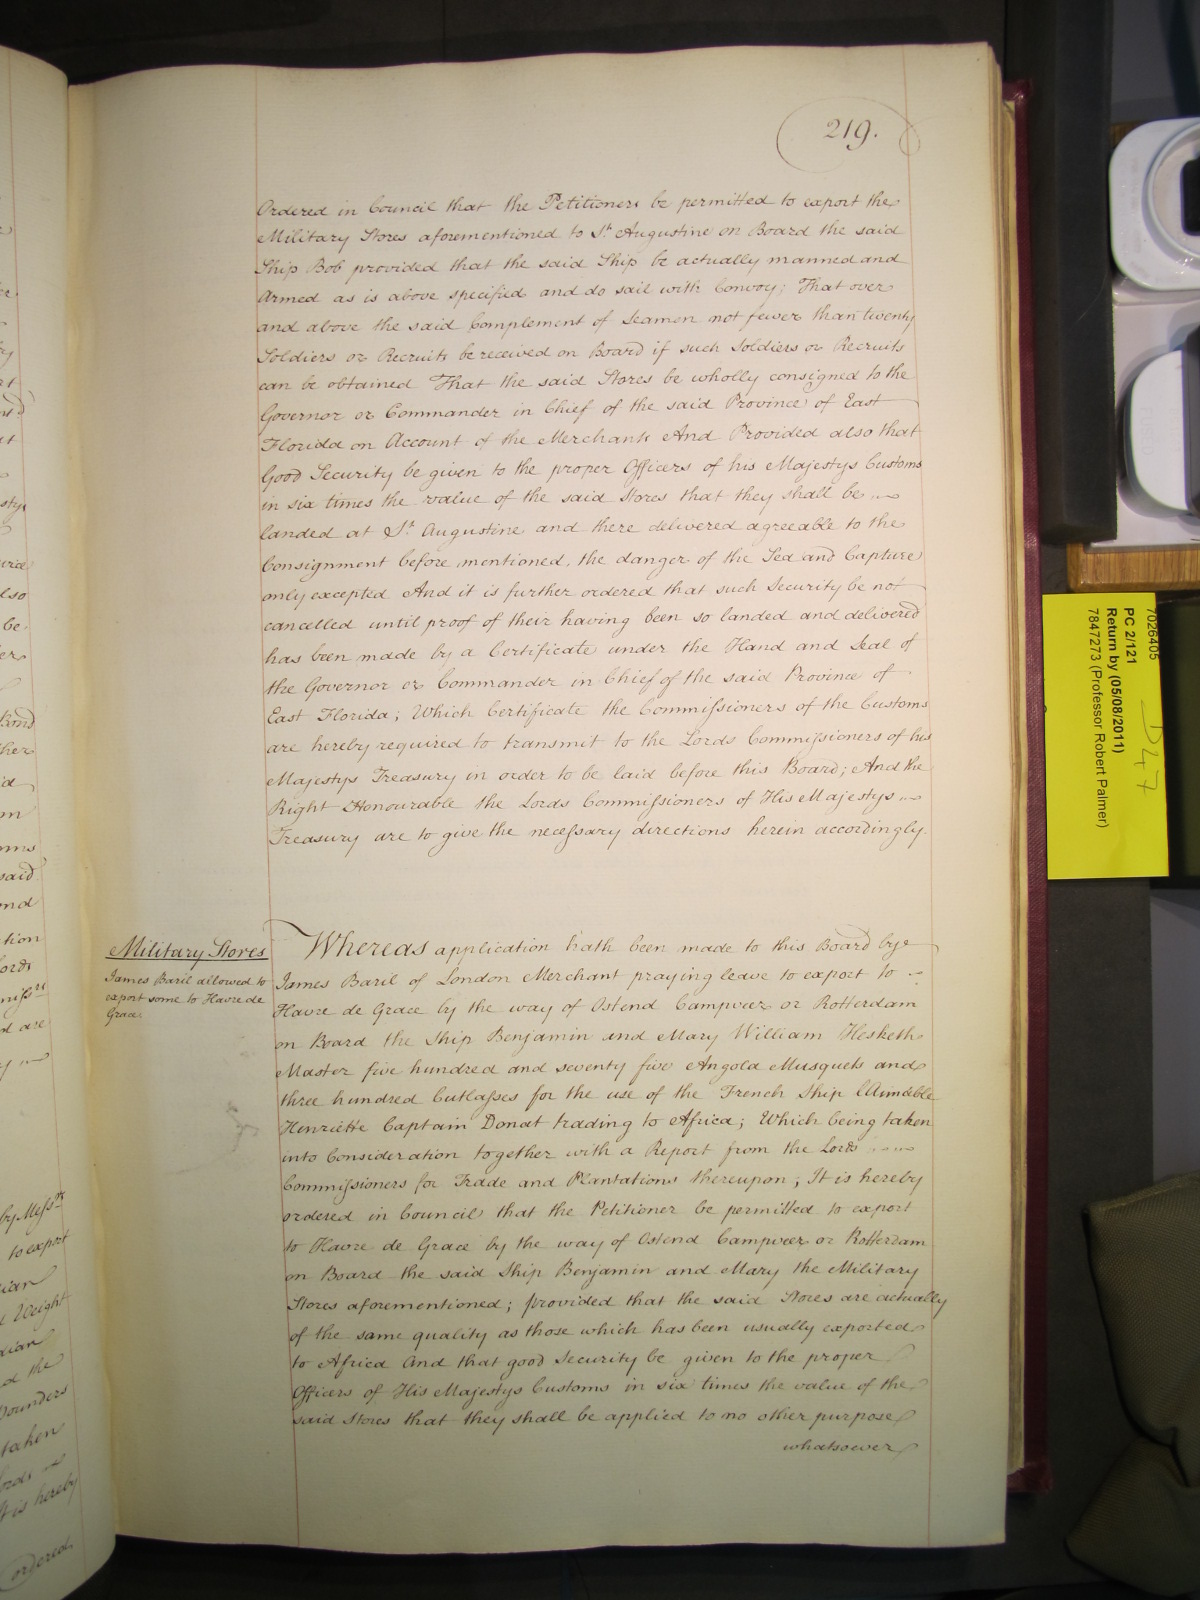 219.
Ordered in Council that the Petitioners be permitted to export the
Military Stores aforementioned to St. Augustine on Board the said
Ship Bob provided that the said Ship be actually manned and
Armed as is above specified and do sail with Convoy; That over
and above the said Complement of Seamen not fewer than twenty
Soldiers or Recruits be received on Board if such Soldiers or Recruits
can be obtained That the said Stores be wholly consigned to the
Governor or Commander in Chief of the said Province of East
Florida on Account of the Merchants And Provided also that
Good Security be given to the proper Officers of his Majestys Customs
in six times the value of the said Stores that they shall be
landed at St. Augustine and there delivered agreeable to the
Consignment before mentioned, the danger of the Sea and Capture
only excepted And it is further ordered that such Security be not
cancelled until proof of their having been so landed and delivered
has been made by a Certificate under the Hand and Seal of
the Governor or Commander in Chief of the said Province of
East Florida; Which Certificate the Commissioners of the Customs
are hereby required to transmit to the Lords Commissioners of his
Majestys Treasury in order to be laid before this Board; And the
Right Honourable the Lords Commissioners of His Majestys
Treasury are to give the necessary directions herein accordingly.
Military Stores
James Baril allowed to
export some to Havre de
Grace.
Whereas application hath been made to this Board by
James Baril of London Merchant praying leave to export to
Havre de Grace by the way of Ostend Campveer or Rotterdam
on Board the Ship Benjamin and Mary William Hesketh
Master five hundred and seventy five Angola Musquets and
three hundred Cutlasses for the use of the French Ship l'Aimable
Henriette Captain Donat trading to Africa; Which being taken
into Consideration together with a Report from the Lords
Commissioners for Trade and Plantations thereupon; It is hereby
ordered in Council that the Petitioner be permitted to export
to Havre de Grace by the way of Ostend Campveer or Rotterdam
on Board the said Ship Benjamin and Mary the Military
Stores aforementioned; provided that the said Stores are actually
of the same quality as those which has been usually exported
to Africa and that good Security be given to the proper
Officers of His Majestys Customs in six times the value of the
said Stores that they shall be applied to no other purpose
whatsoever
7026405
PC 2/121
Return by (05/08/2011)
7847273 (Professor Robert Palmer)
D47
by Messrs
to export
Weight
the
taken
It is hereby
ordered